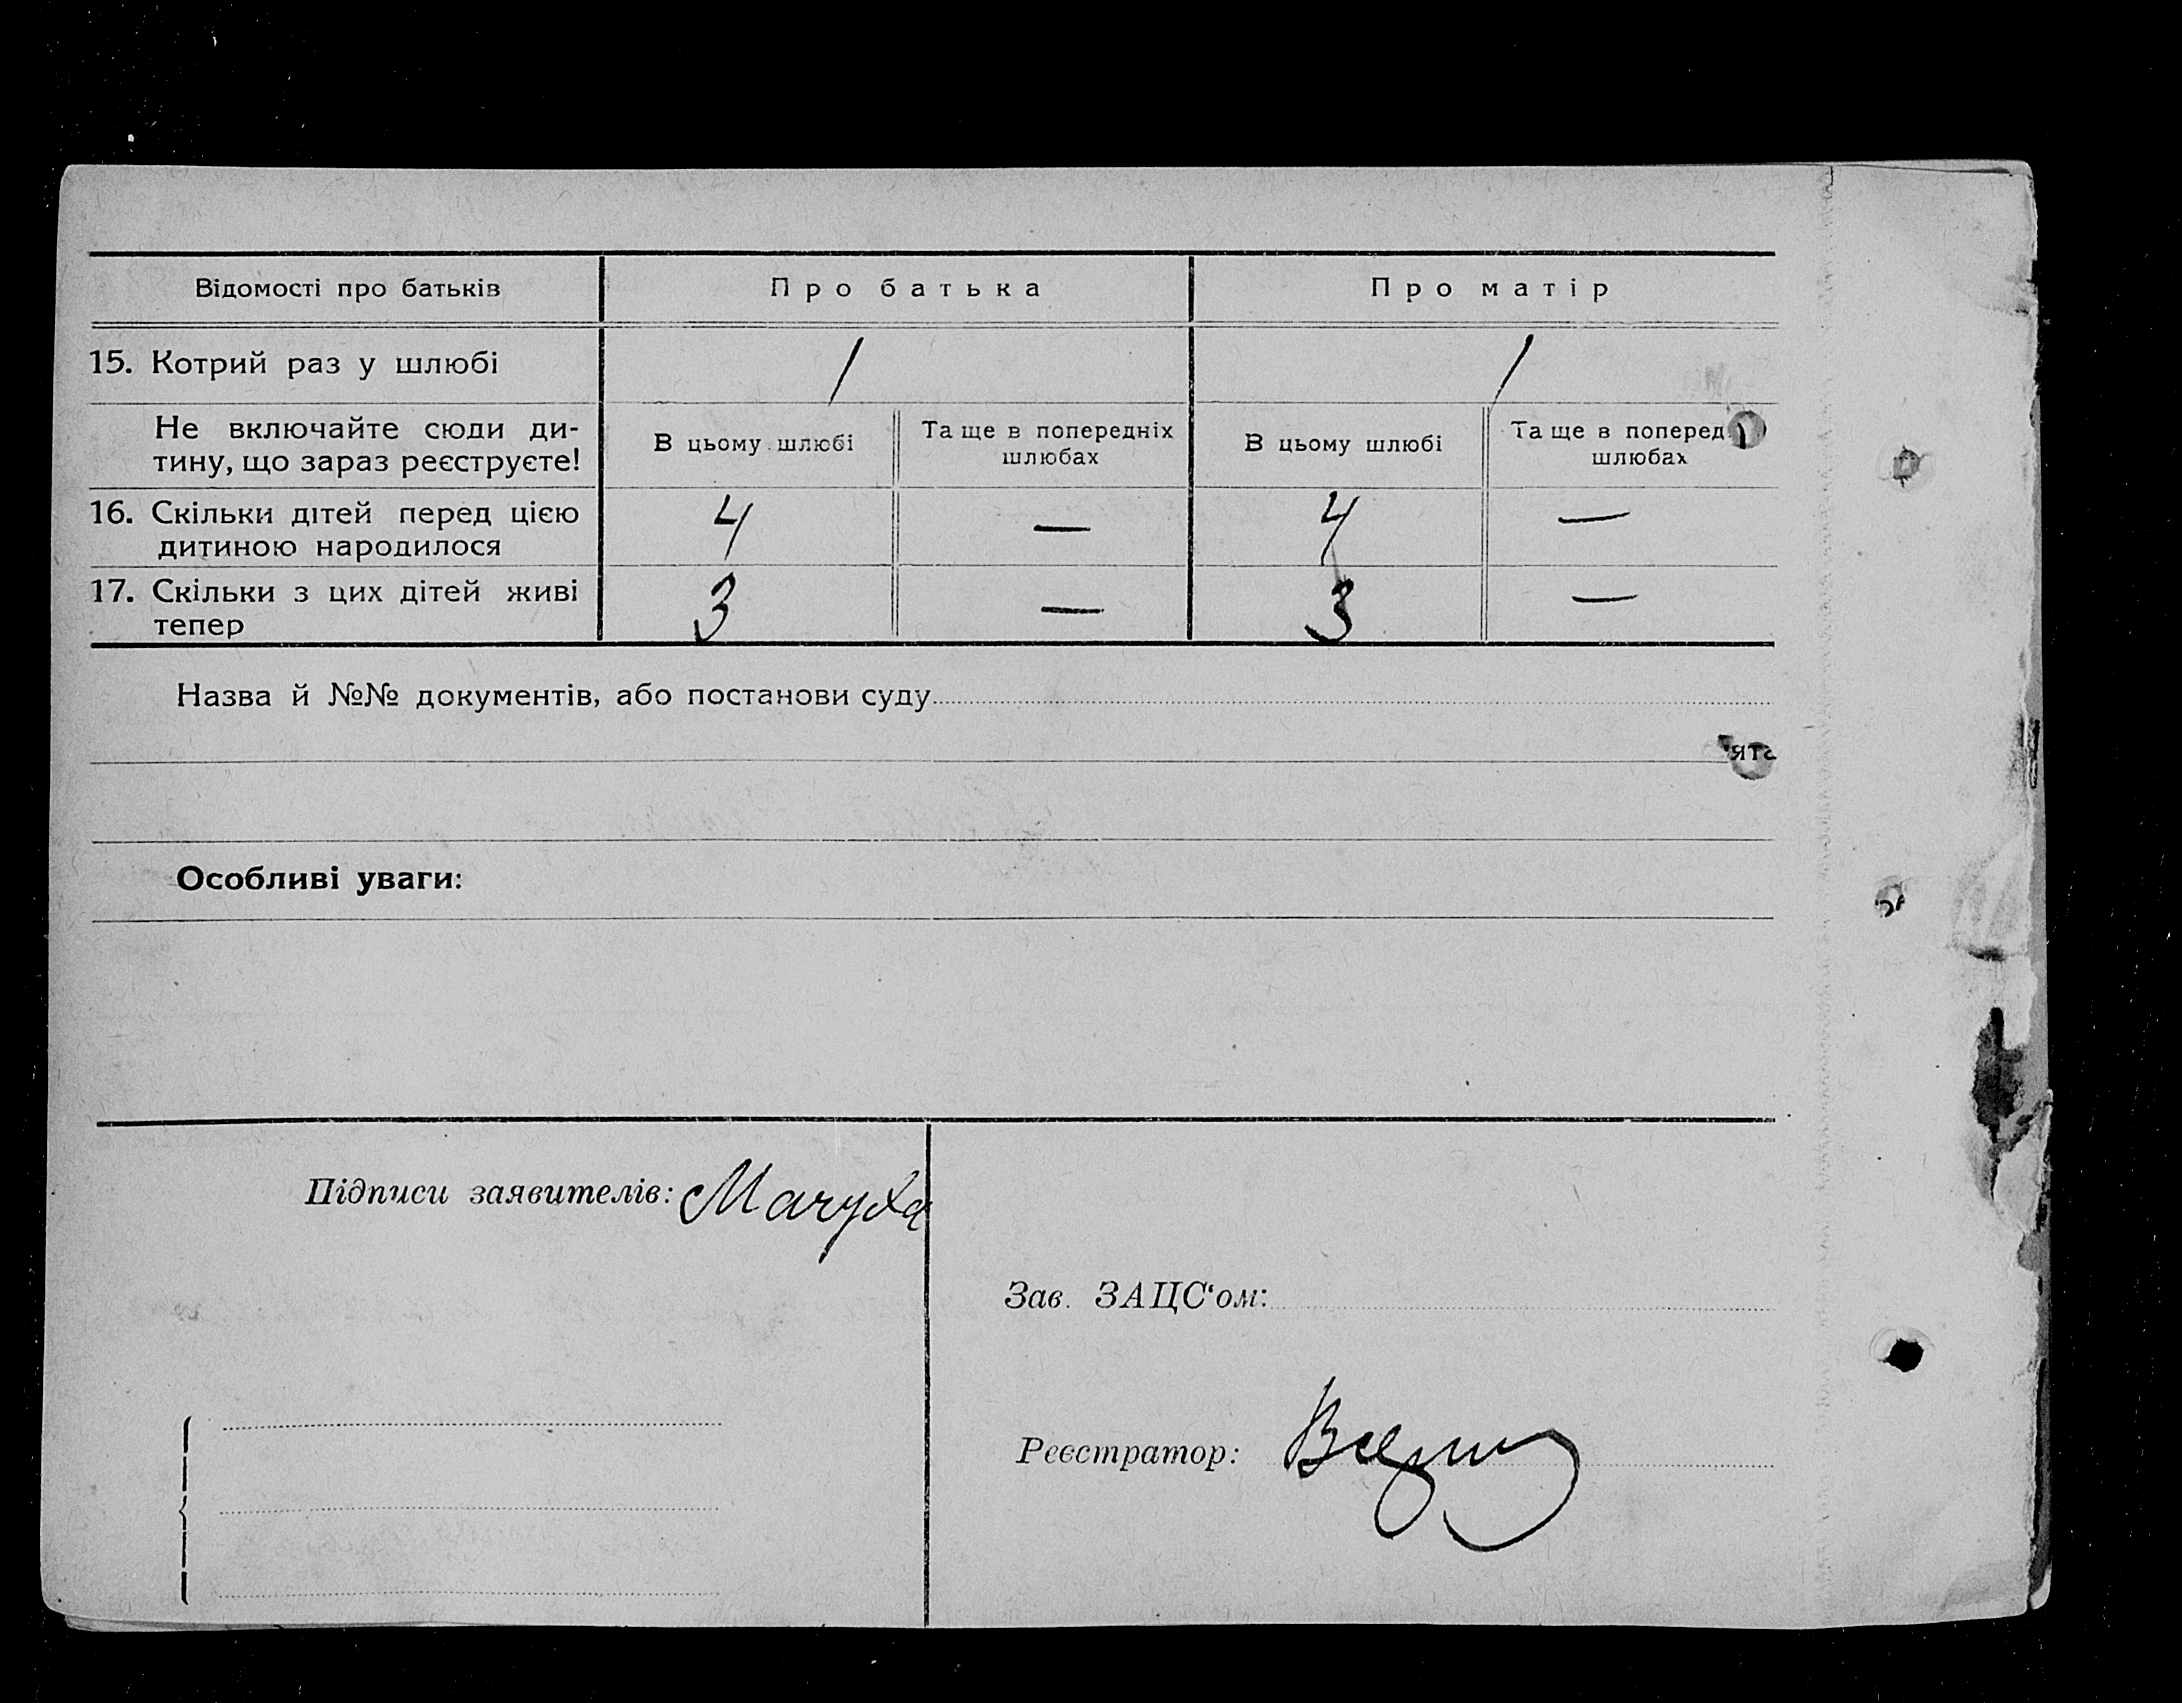 Відомості про батьків
Про батька
Про матір
15. Котрий раз у шлюбі
1
1
Не включайте сюди ди-
тину, що зараз реєструєте!
В цьому шлюбі
Та ще в попередніх
шлюбах
В цьому шлюбі
Та ще в поперед
шлюбах
16. Скільки дітей перед цією
дитиною народилося
4
—
4
—
17. Скільки з цих дітей живі
тепер
3
—
3
—
Назва й №№ документів, або постанови суду
ята
Особливі уваги:
Підписи заявителів: Мачуха
Зав. ЗАЦС‘ом:
Реєстратор: